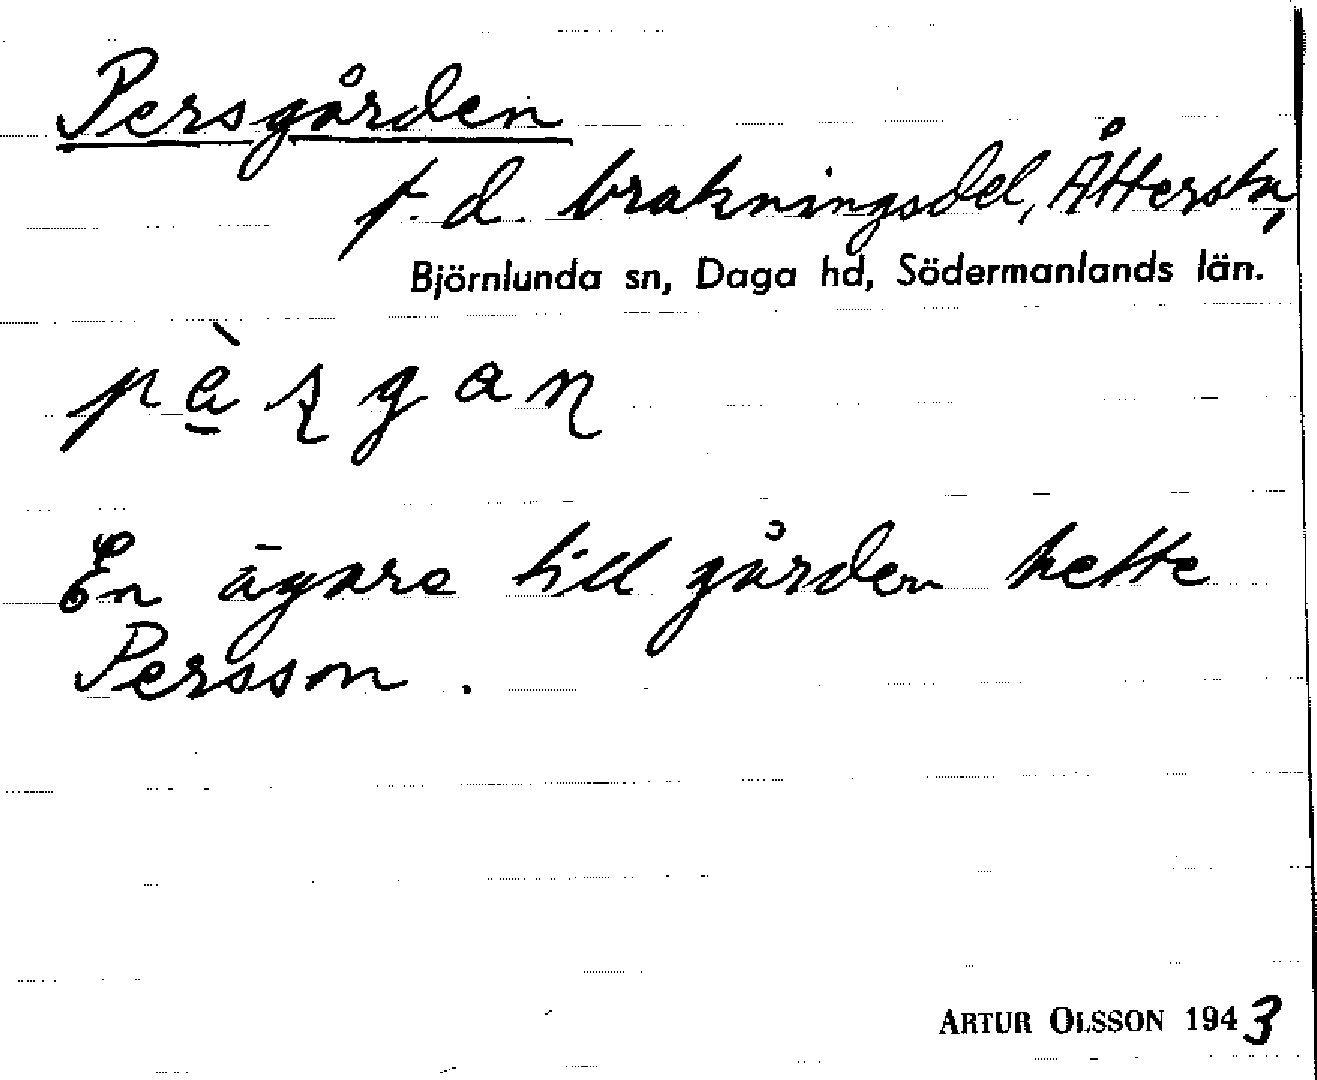 Persgården
f.d. brukningsdel, Åttersta,
Björnlunda sn, Daga hd, Södermanlands län.
En ägare till gården hette
Persson.
ARTUR OLSSON 1943